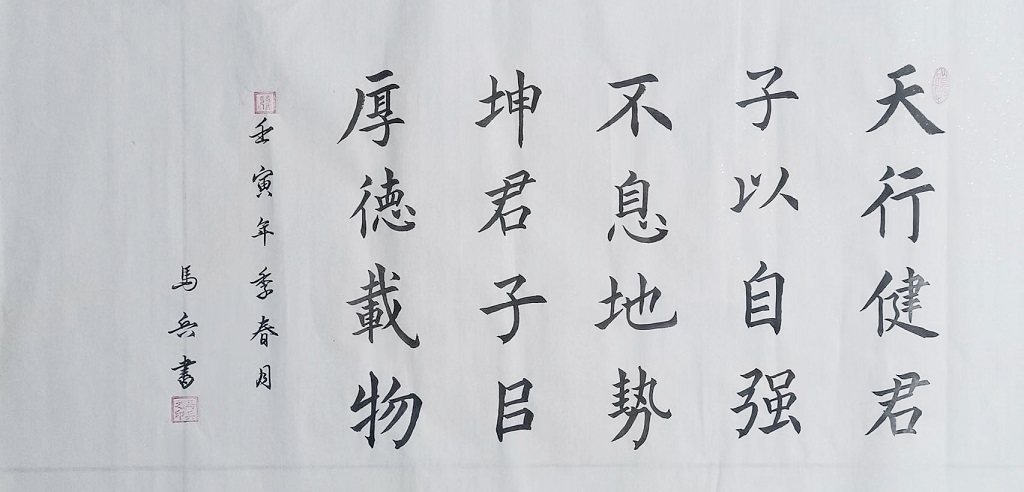 天行健君
子以自强
不息地勢
坤君子㠯
厚德載物
壬寅年季春月
馬兵書